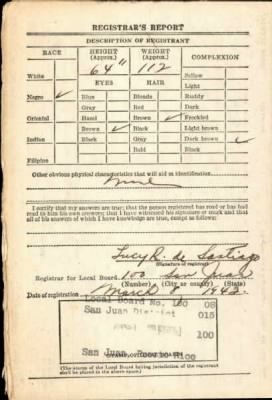 REGISTRAR'S REPORT
DESCRIPTION OF REGISTRANT
RACE HEIGHT (Approx.) WEIGHT (Approx.) COMPLEXION
64" 112
White EYES HAIR Sallow
Light
Negro ✓ Blue Blonde Ruddy
Gray Red Dark
Oriental Hazel Brown ✓ Freckled
Brown ✓ Black Light brown
Indian Black Gray Dark brown ✓
Bald Black
Filipino
Other obvious physical characteristics that will aid in identification
I certify that my answers are true; that the person registered has read or has had
read to him his own answers; that I have witnessed his signature or mark and that
all of his answers of which I have knowledge are true, except as follows:
Lucy R. de Santiago
(Signature of registrar)
Registrar for Local Board 100 San Juan
(Number) (City or county) (State)
Date of registration March 8 1942
Local Board No. 100 08
San Juan 015
100
San Juan, Rico
(STAMP OF LOCAL BOARD)
(The stamp of the Local Board having jurisdiction of the registrant
shall be placed in the above space.)